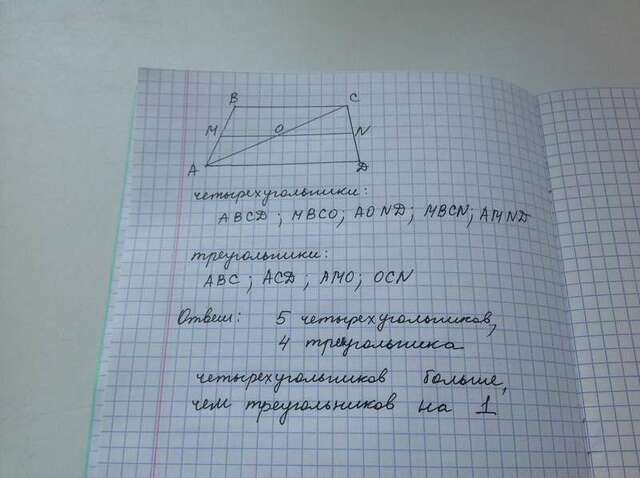 B C
M O N
A D
четырехугольники:
ABCD; MBCO; AOND; MBCN; AMND
треугольники:
ABC; ACD; AMO; OCN
Ответ: 5 четырехугольников,
4 треугольника
четырехугольников больше,
чем треугольников на 1